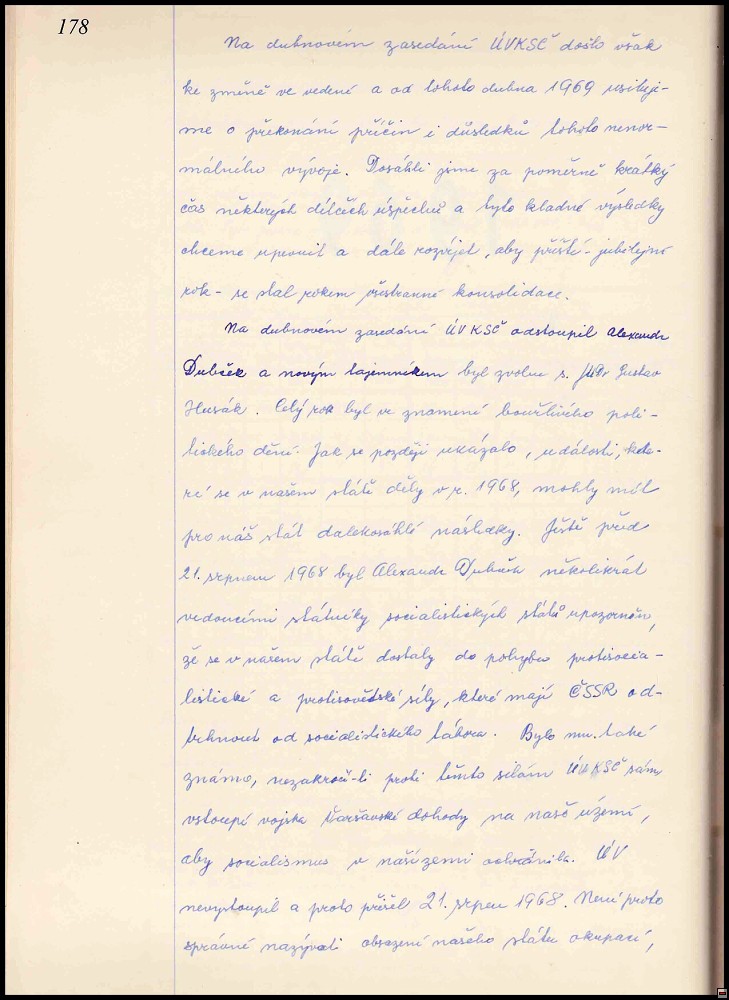 178
Na dubnovém zasedání ÚVKSČ došlo však
ke změně ve vedení a od tohoto dubna 1969 usiluje-
me o překonání příčin i důsledků tohoto nenor-
málního vývoje. Dosáhli jsme za poměrně krátký
čas některých dílčích úspěchů a tyto kladné výsledky
chceme upevnit a dále rozvíjet, aby příští - jubilejní
rok - se stal rokem všestranné konsolidace.
Na dubnovém zasedání ÚVKSČ odstoupil Alexandr
Dubček a novým tajemníkem byl zvolen s. JUDr Gustav
Husák. Celý rok byl ve znamení bouřlivého poli-
tického dění. Jak se později ukázalo, události, kte-
ré se v našem státě děly v r. 1968, mohly mít
pro náš stát dalekosáhlé následky. Ještě před
21. srpnem 1968 byl Alexandr Dubček několikrát
vedoucími státníky socialistických států upozorněn,
že se v našem státě dostaly do pohybu protisocia-
listické a protisovětské síly, které mají ČSSR od-
trhnout od socialistického tábora. Bylo mu také
známo, nezakročí-li proti těmto silám ÚVKSČ sám,
vstoupí vojska Varšavské dohody na naše území,
aby socialismus v naší zemi ochránila. ÚV
nevystoupil a proto přišel 21. srpen 1968. Není proto
správné nazývati obsazení našeho státu okupací,